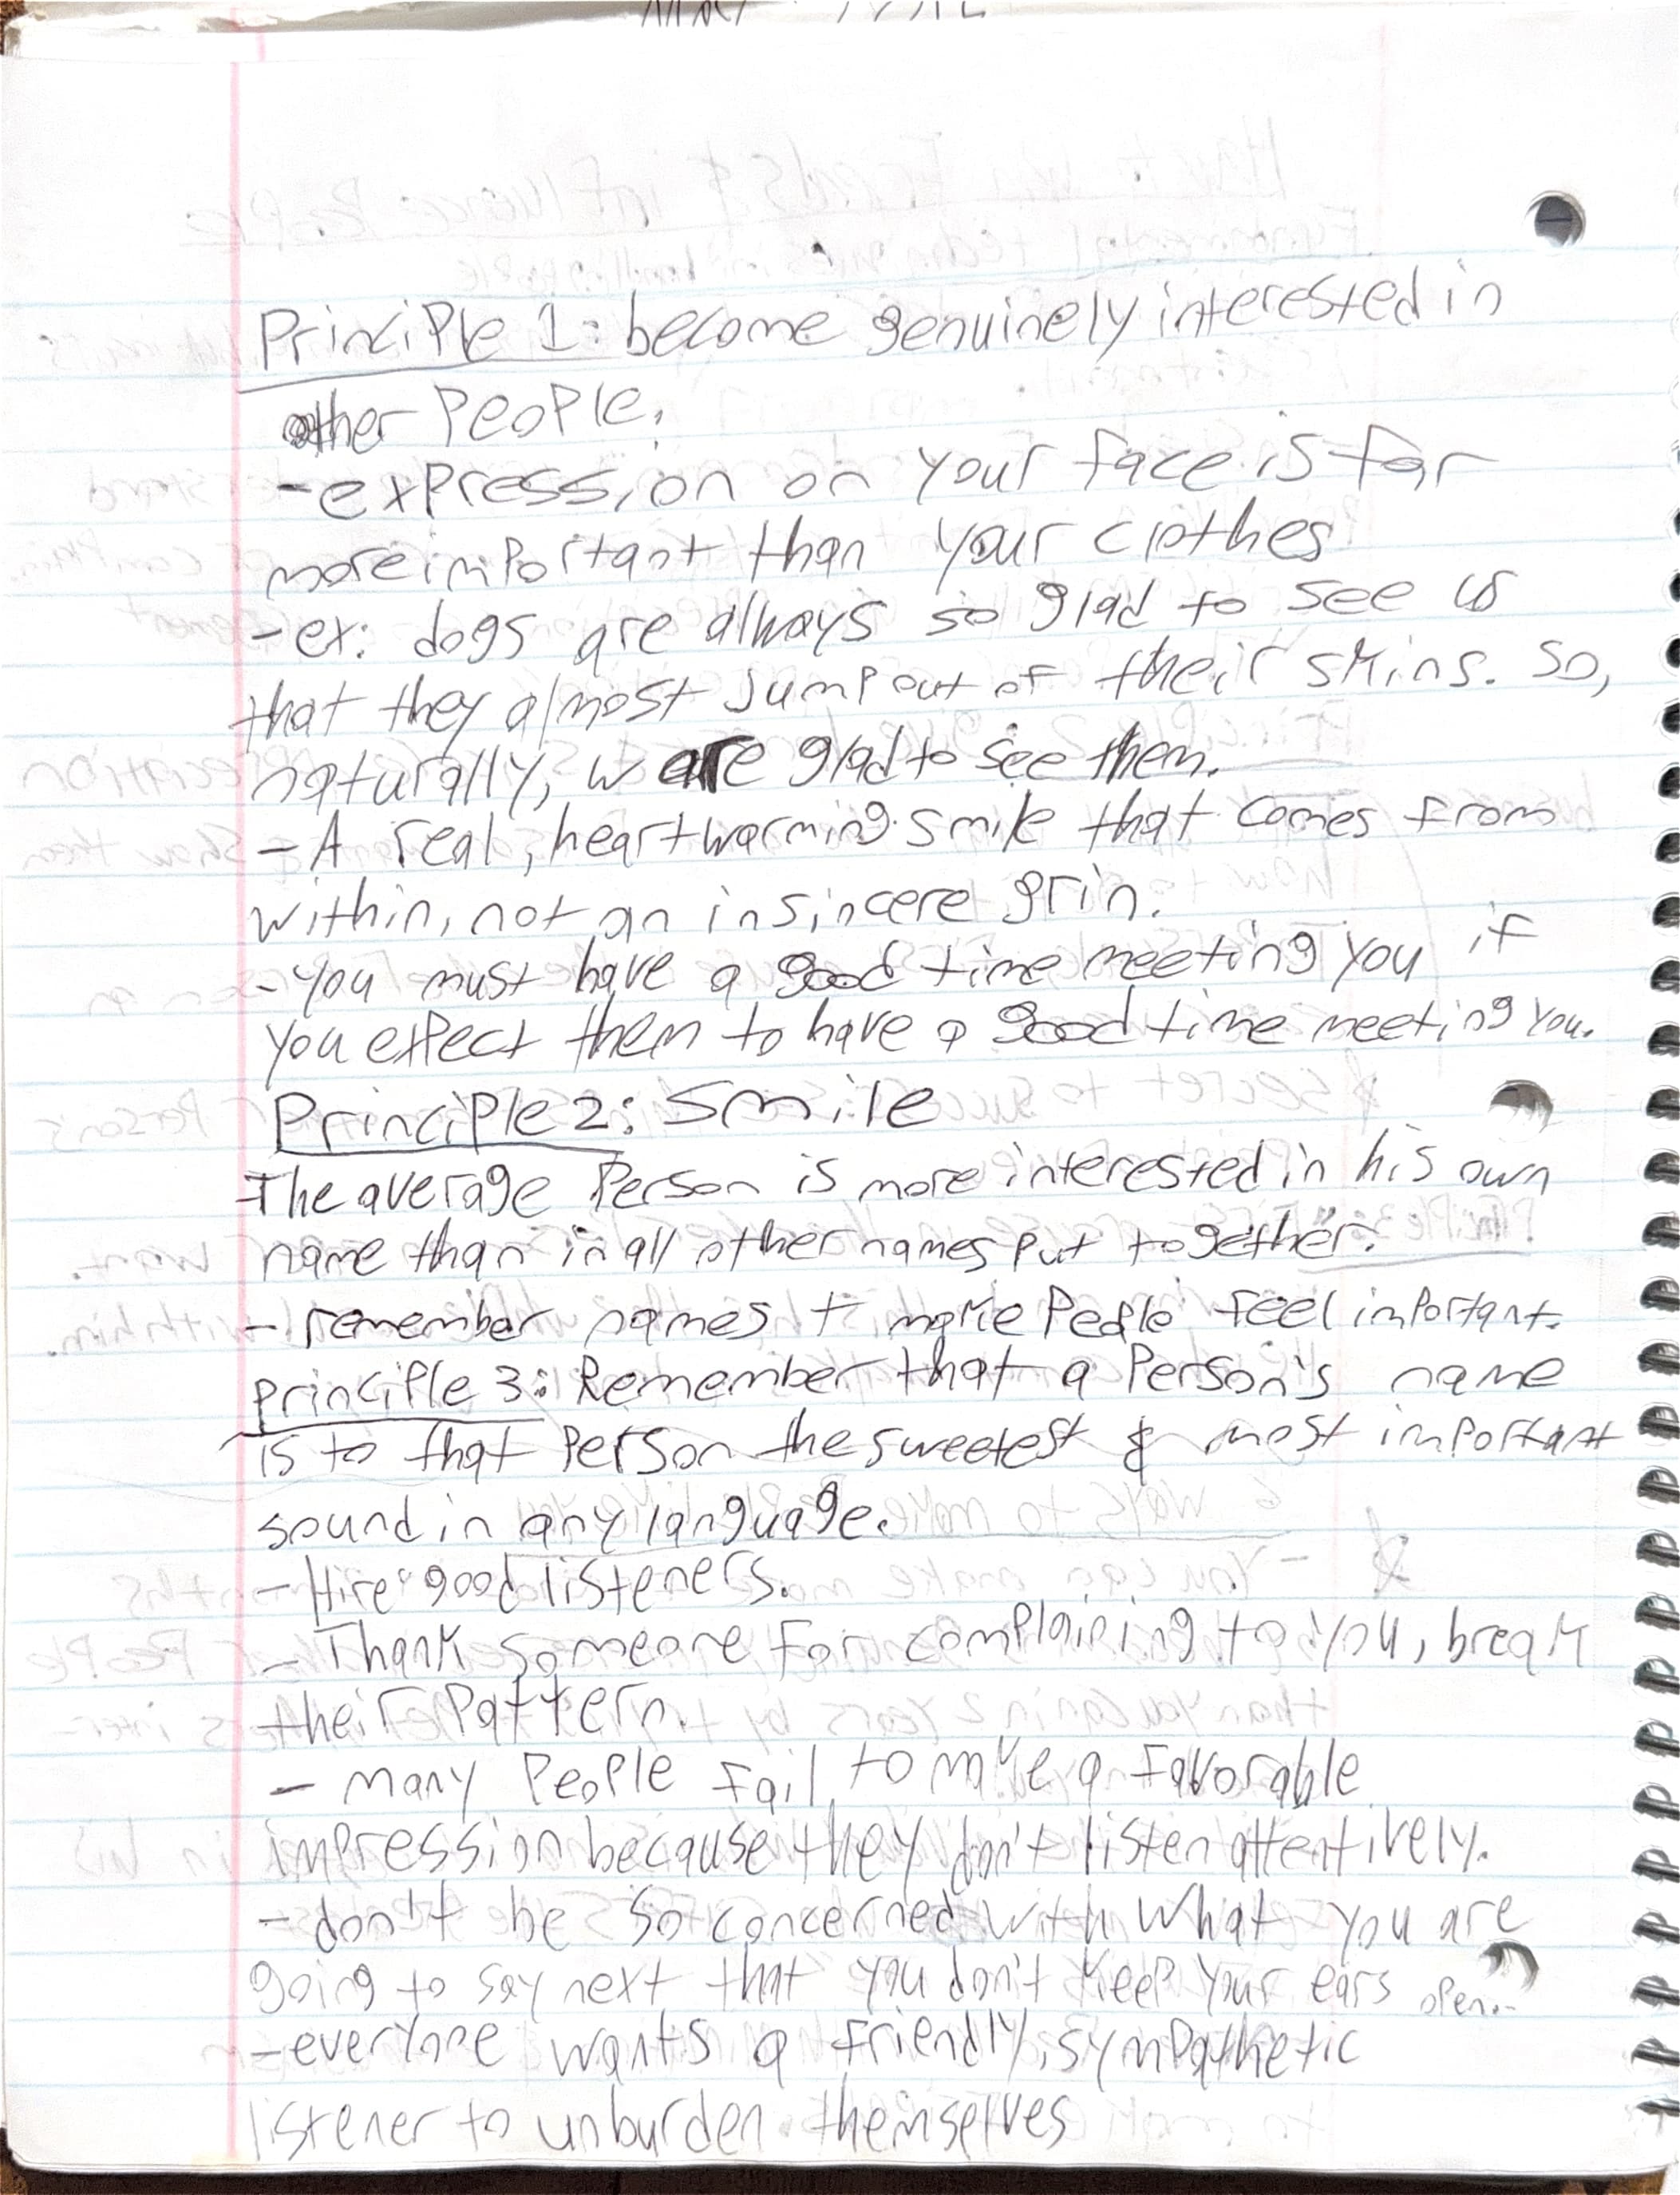 Principle 1: become genuinely interested in
other People.
- expression on your face is far
more important than your clothes
- ex: dogs are always so glad to see us
that they almost jump out of their skins. So,
naturally, w are glad to see them.
- A real, heartwarming smile that comes from
within, not an insincere grin.
- you must have a good time meeting you if
you expect them to have a good time meeting you.
Principle 2: Smile
The average Person is more interested in his own
name than in all other names put together.
- remember names + make People feel important.
principle 3: Remember that a Person's name
is to that Person the sweetest & most important
sound in any language.
- Hire good listeners.
- Thank someone for complaining to you, break
their pattern.
- many People fail to make a favorable
impression because they don't listen attentively.
- don't be so concerned with what you are
going to say next that you don't keep your ears open.
- everyone wants a friendly, sympathetic
listener to unburden themselves